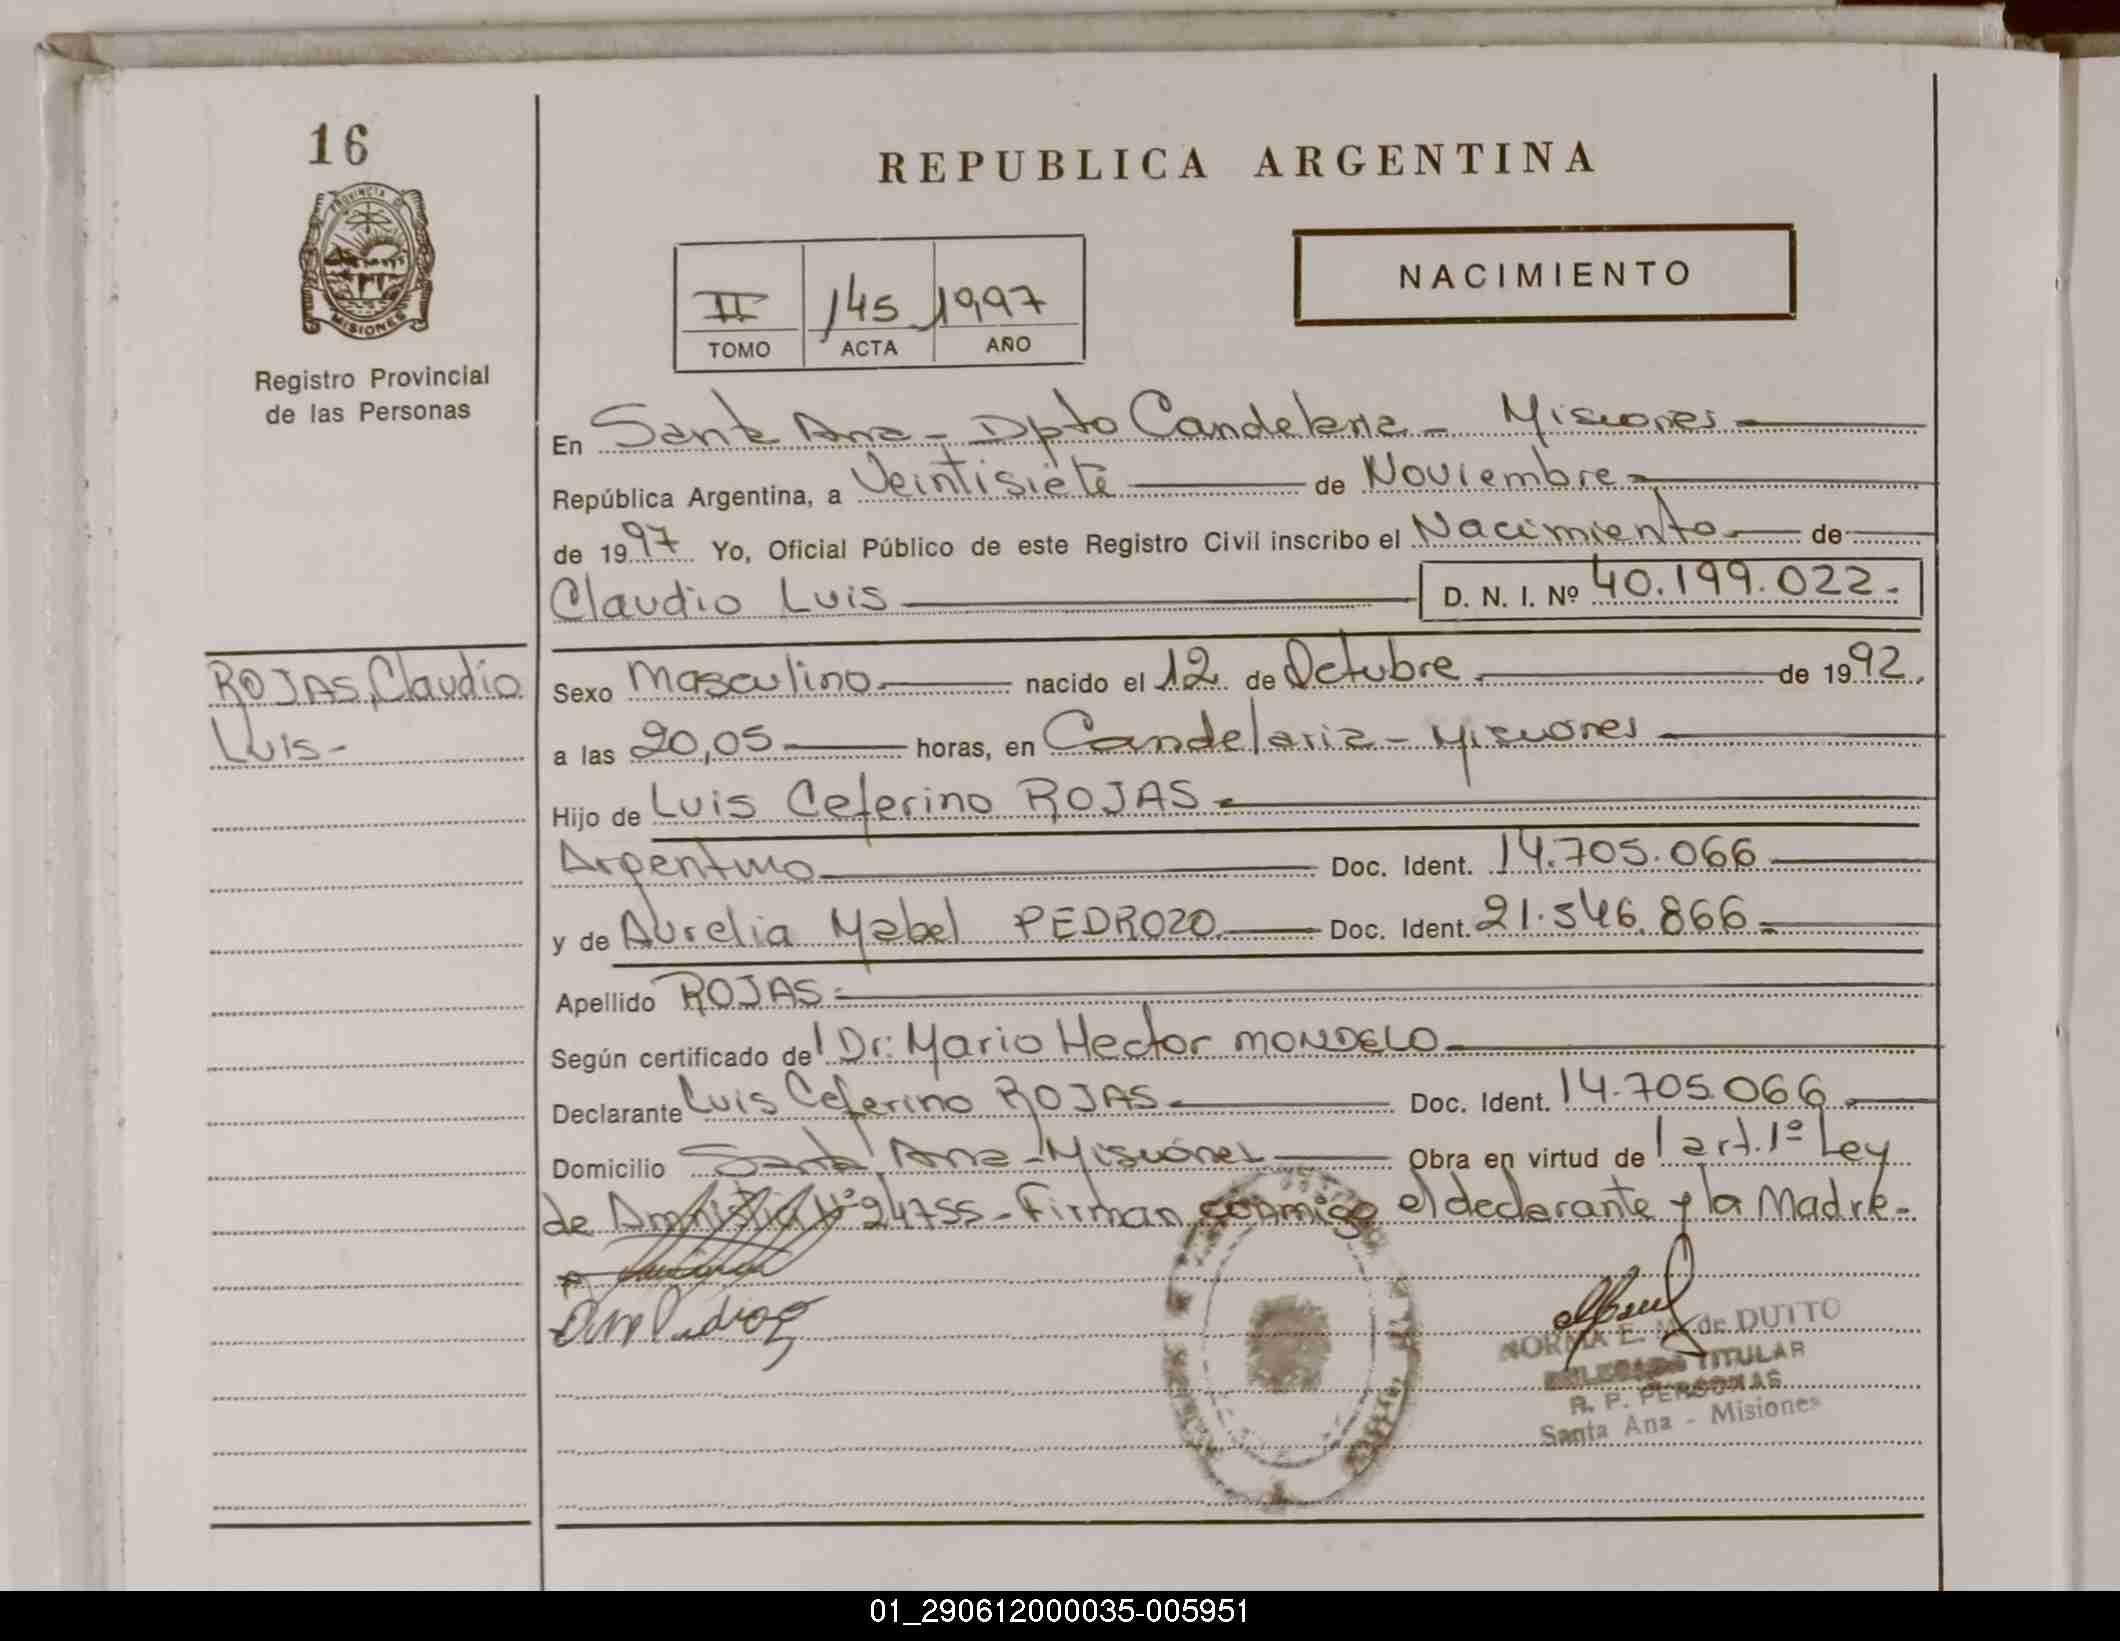 16
PROVINCIA DE
MISIONES
Registro Provincial
de las Personas
REPUBLICA ARGENTINA
II 145 1997
TOMO ACTA AÑO
NACIMIENTO
En Santa Ana - Dpto Candelaria - Misiones
República Argentina, a Veintisiete de Noviembre
de 1997 Yo, Oficial Público de este Registro Civil inscribo el Nacimiento de
Claudio Luis D. N. I. Nº 40.199.022.
ROJAS, Claudio
Luis-
Sexo Masculino nacido el 12 de Octubre de 1992.
a las 20,05 horas, en Candelaria - Misiones
Hijo de Luis Ceferino ROJAS
Argentino Doc. Ident. 14.705.066
y de Aurelia Mabel PEDROZO Doc. Ident. 21.546.866
Apellido ROJAS
Según certificado del Dr. Mario Hector MONDELO
Declarante Luis Ceferino ROJAS Doc. Ident. 14.705.066
Domicilio Santa Ana - Misiones Obra en virtud del art. 1º Ley
de Amnistia Nº 24755 - Firman conmigo el declarante y la Madre.
NORMA E. M. de DUTTO
DELEGADA TITULAR
R. P. PERSONAS
Santa Ana - Misiones
01_290612000035-005951